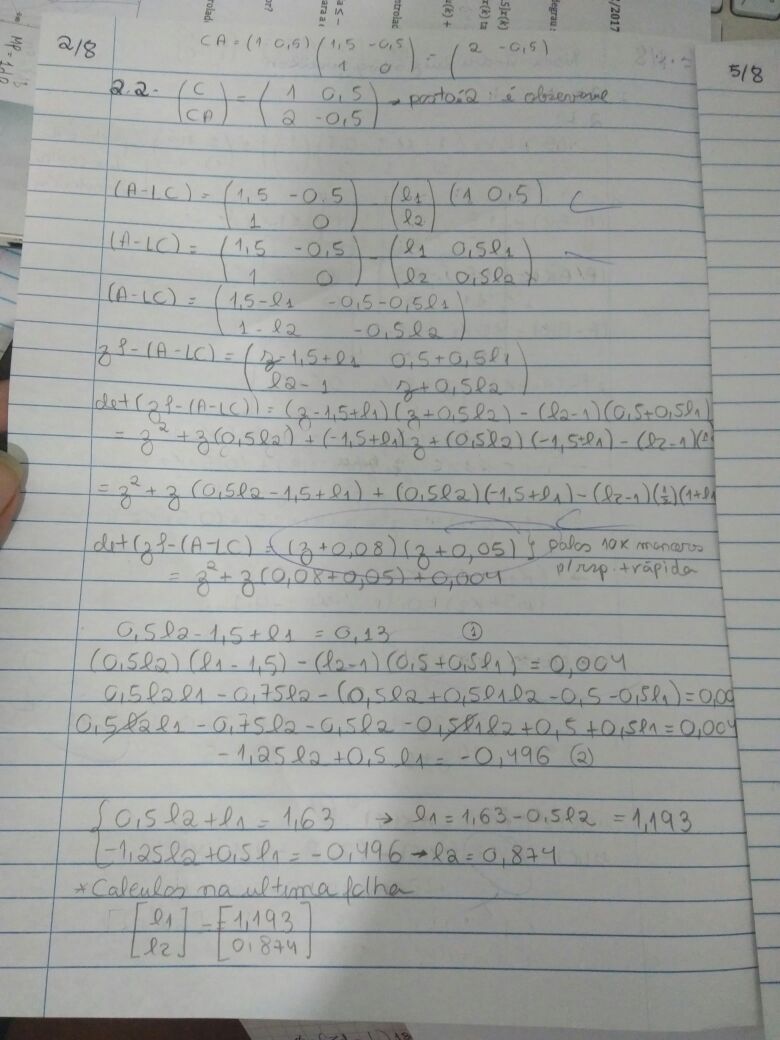 2/8
CA = (1 0,5) (1,5 -0,5
1 0) = (2 -0,5)
5/8
2.2- (C
CA) = (1 0,5
2 -0,5) → posto: 2 : é observável
(A-LC) = (1,5 -0,5
1 0) - (l1
l2) (1 0,5)
(A-LC) = (1,5 -0,5
1 0) - (l1 0,5l1
l2 0,5l2)
(A-LC) = (1,5-l1 -0,5-0,5l1
1-l2 -0,5l2)
zI-(A-LC) = (z-1,5+l1 0,5+0,5l1
l2-1 z+0,5l2)
det(zI-(A-LC)) = (z-1,5+l1)(z+0,5l2) - (l2-1)(0,5+0,5l1)
= z² + z(0,5l2) + (-1,5+l1)z + (0,5l2)(-1,5+l1) - (l2-1)(
= z² + z (0,5l2-1,5+l1) + (0,5l2)(-1,5+l1) - (l2-1)(1/2)(1+l1
det(zI-(A-LC) = (z+0,08)(z+0,05) } polos 10x menores
p/ resp. + rápida
= z² + z(0,08+0,05) + 0,004
0,5l2-1,5+l1 = 0,13 ①
(0,5l2)(l1-1,5) - (l2-1)(0,5+0,5l1) = 0,004
0,5l2l1 - 0,75l2 - (0,5l2+0,5l1l2-0,5-0,5l1) = 0,00
0,5l2l1 - 0,75l2 - 0,5l2 - 0,5l1l2 + 0,5 + 0,5l1 = 0,004
-1,25l2 + 0,5 l1 = -0,496 ②
{ 0,5l2 + l1 = 1,63 → l1 = 1,63 - 0,5l2 = 1,193
-1,25l2 + 0,5l1 = -0,496 → l2 = 0,874
*Calculos na ultima folha
[l1
l2] = [1,193
0,874]